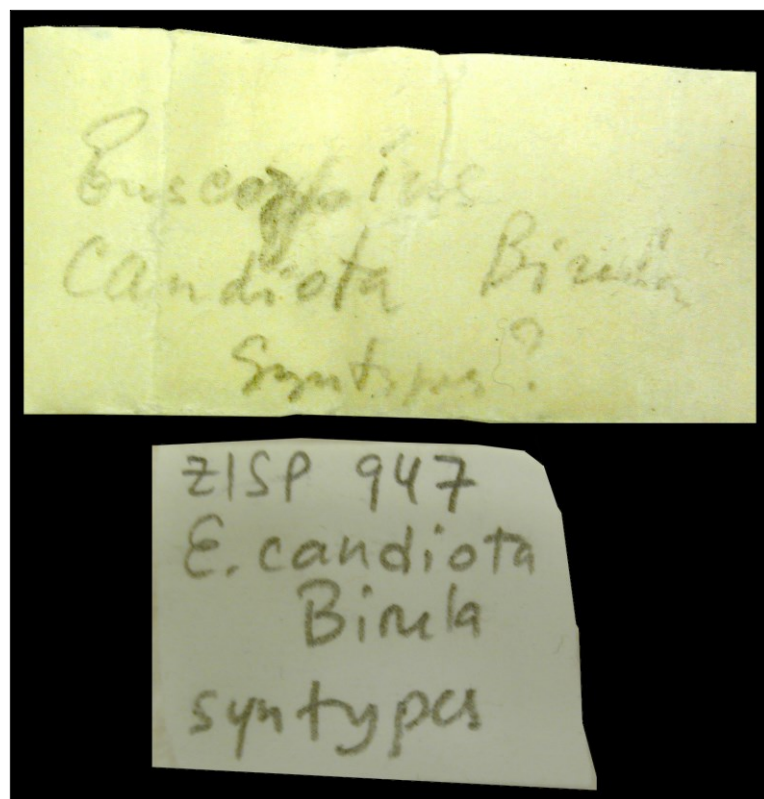 Euscorpius
candiota Birula
Syntypes?
ZISP 947
E. candiota
Birula
syntypes